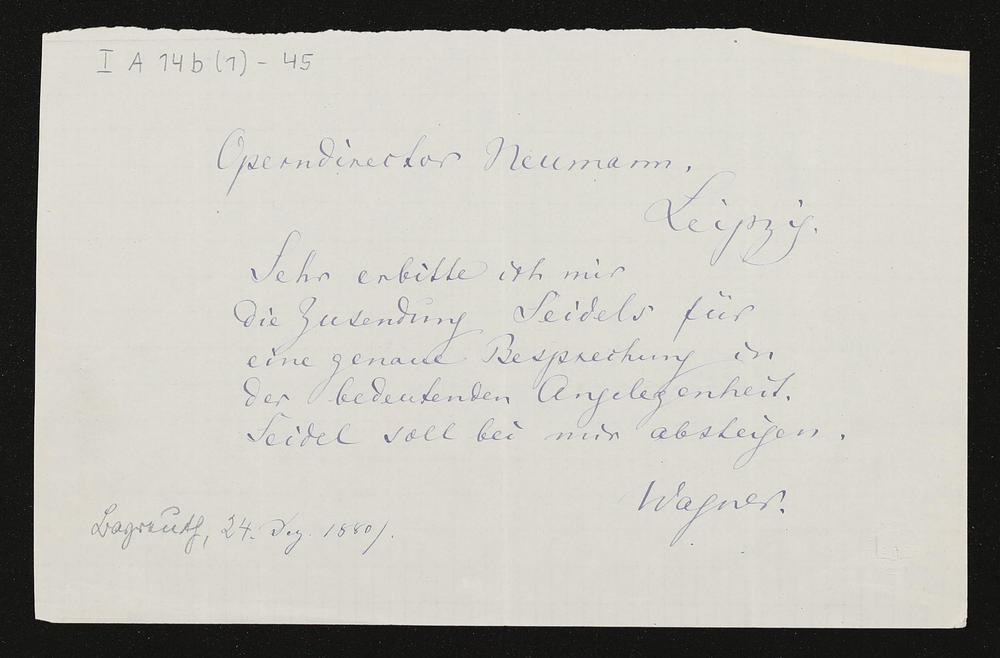 I A 14b (1) - 45
Operndirector Neumann.
Leipzig.
Sehr erbitte ich mir
die Zusendung Seidels für
eine genaue Besprechung in
der bedeutenden Angelegenheit.
Seidel soll bei mir absteigen.
Wagner.
Bayreuth, 24. Dez. 1880/.